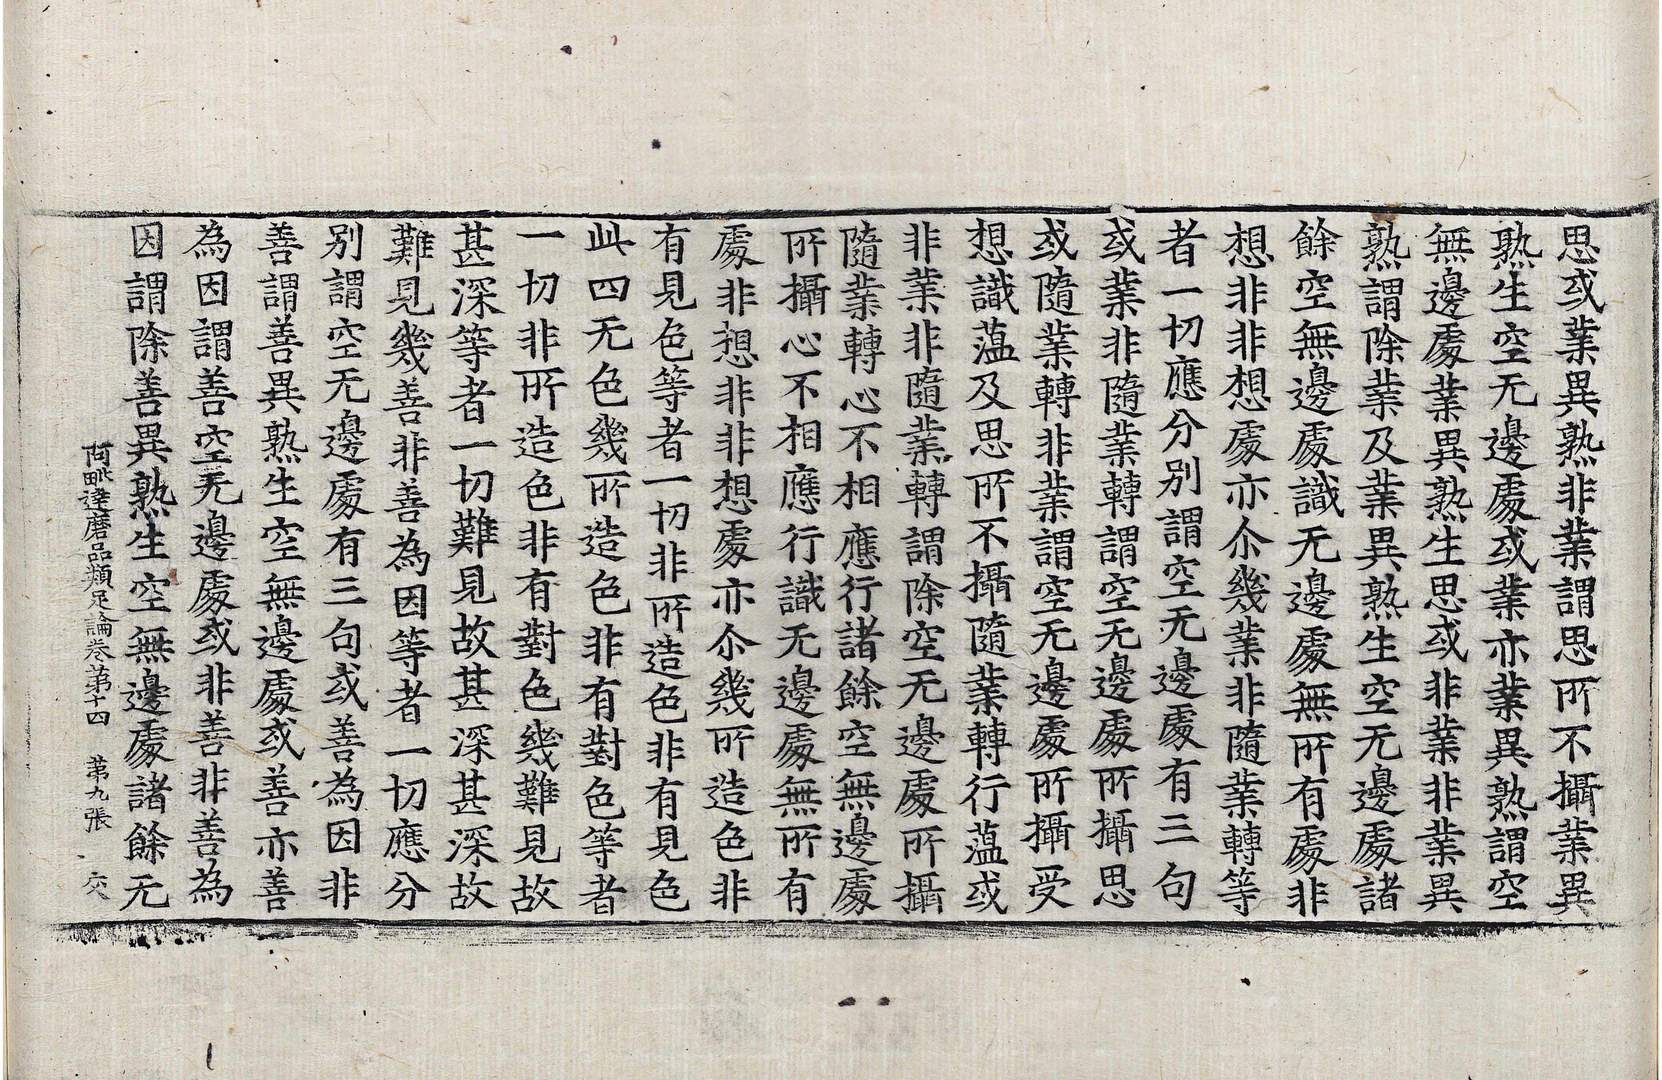 思或業異熟非業謂思所不攝業異
熟生空无邊處或業亦業異熟謂空
無邊處業異熟生思或非業非業異
熟謂除業及業異熟生空无邊處諸
餘空無邊處識无邊處無所有處非
想非非想處亦尒幾業非隨業轉等
者一切應分別謂空无邊處有三句
或業非隨業轉謂空无邊處所攝思
或隨業轉非業謂空无邊處所攝受
想識薀及思所不攝隨業轉行薀或
非業非隨業轉謂除空无邊處所攝
隨業轉心不相應行諸餘空無邊處
所攝心不相應行識无邊處無所有
處非想非非想處亦尒幾所造色非
有見色等者一切非所造色非有見色
此四无色幾所造色非有對色等者
一切非所造色非有對色幾難見故
甚深等者一切難見故甚深甚深故
難見幾善非善為因等者一切應分
別謂空无邊處有三句或善為因非
善謂善異熟生空無邊處或善亦善
為因謂善空无邊處或非善非善為
因謂除善異熟生空無邊處諸餘无
阿毗達磨品類足論卷第十四 第九張 交